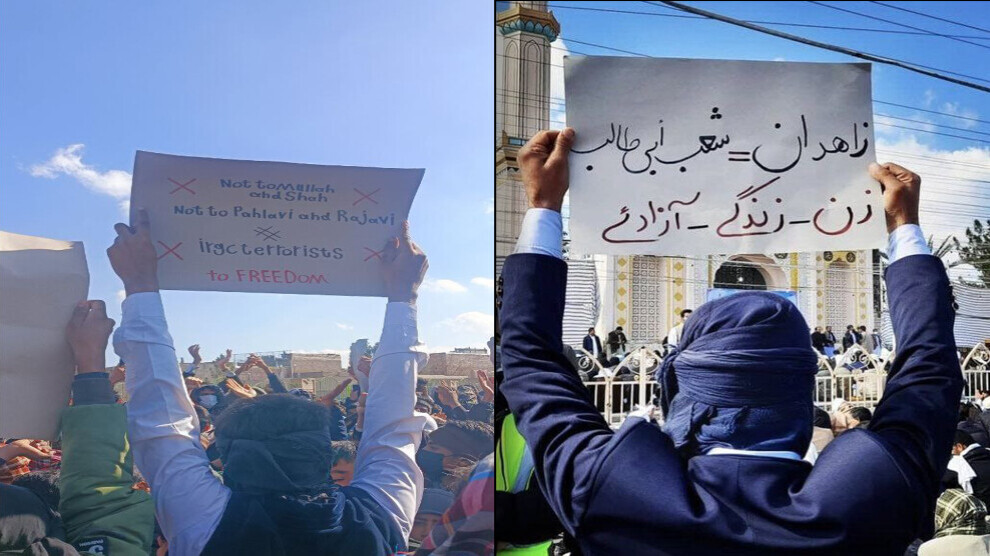 Not to Mullah
and Shah
Not to Pahlavi and Rajavi
irgc terrorists
to FREEDOM
زاهدان = شعب أبي طالب
زن - زندگے - آزادے